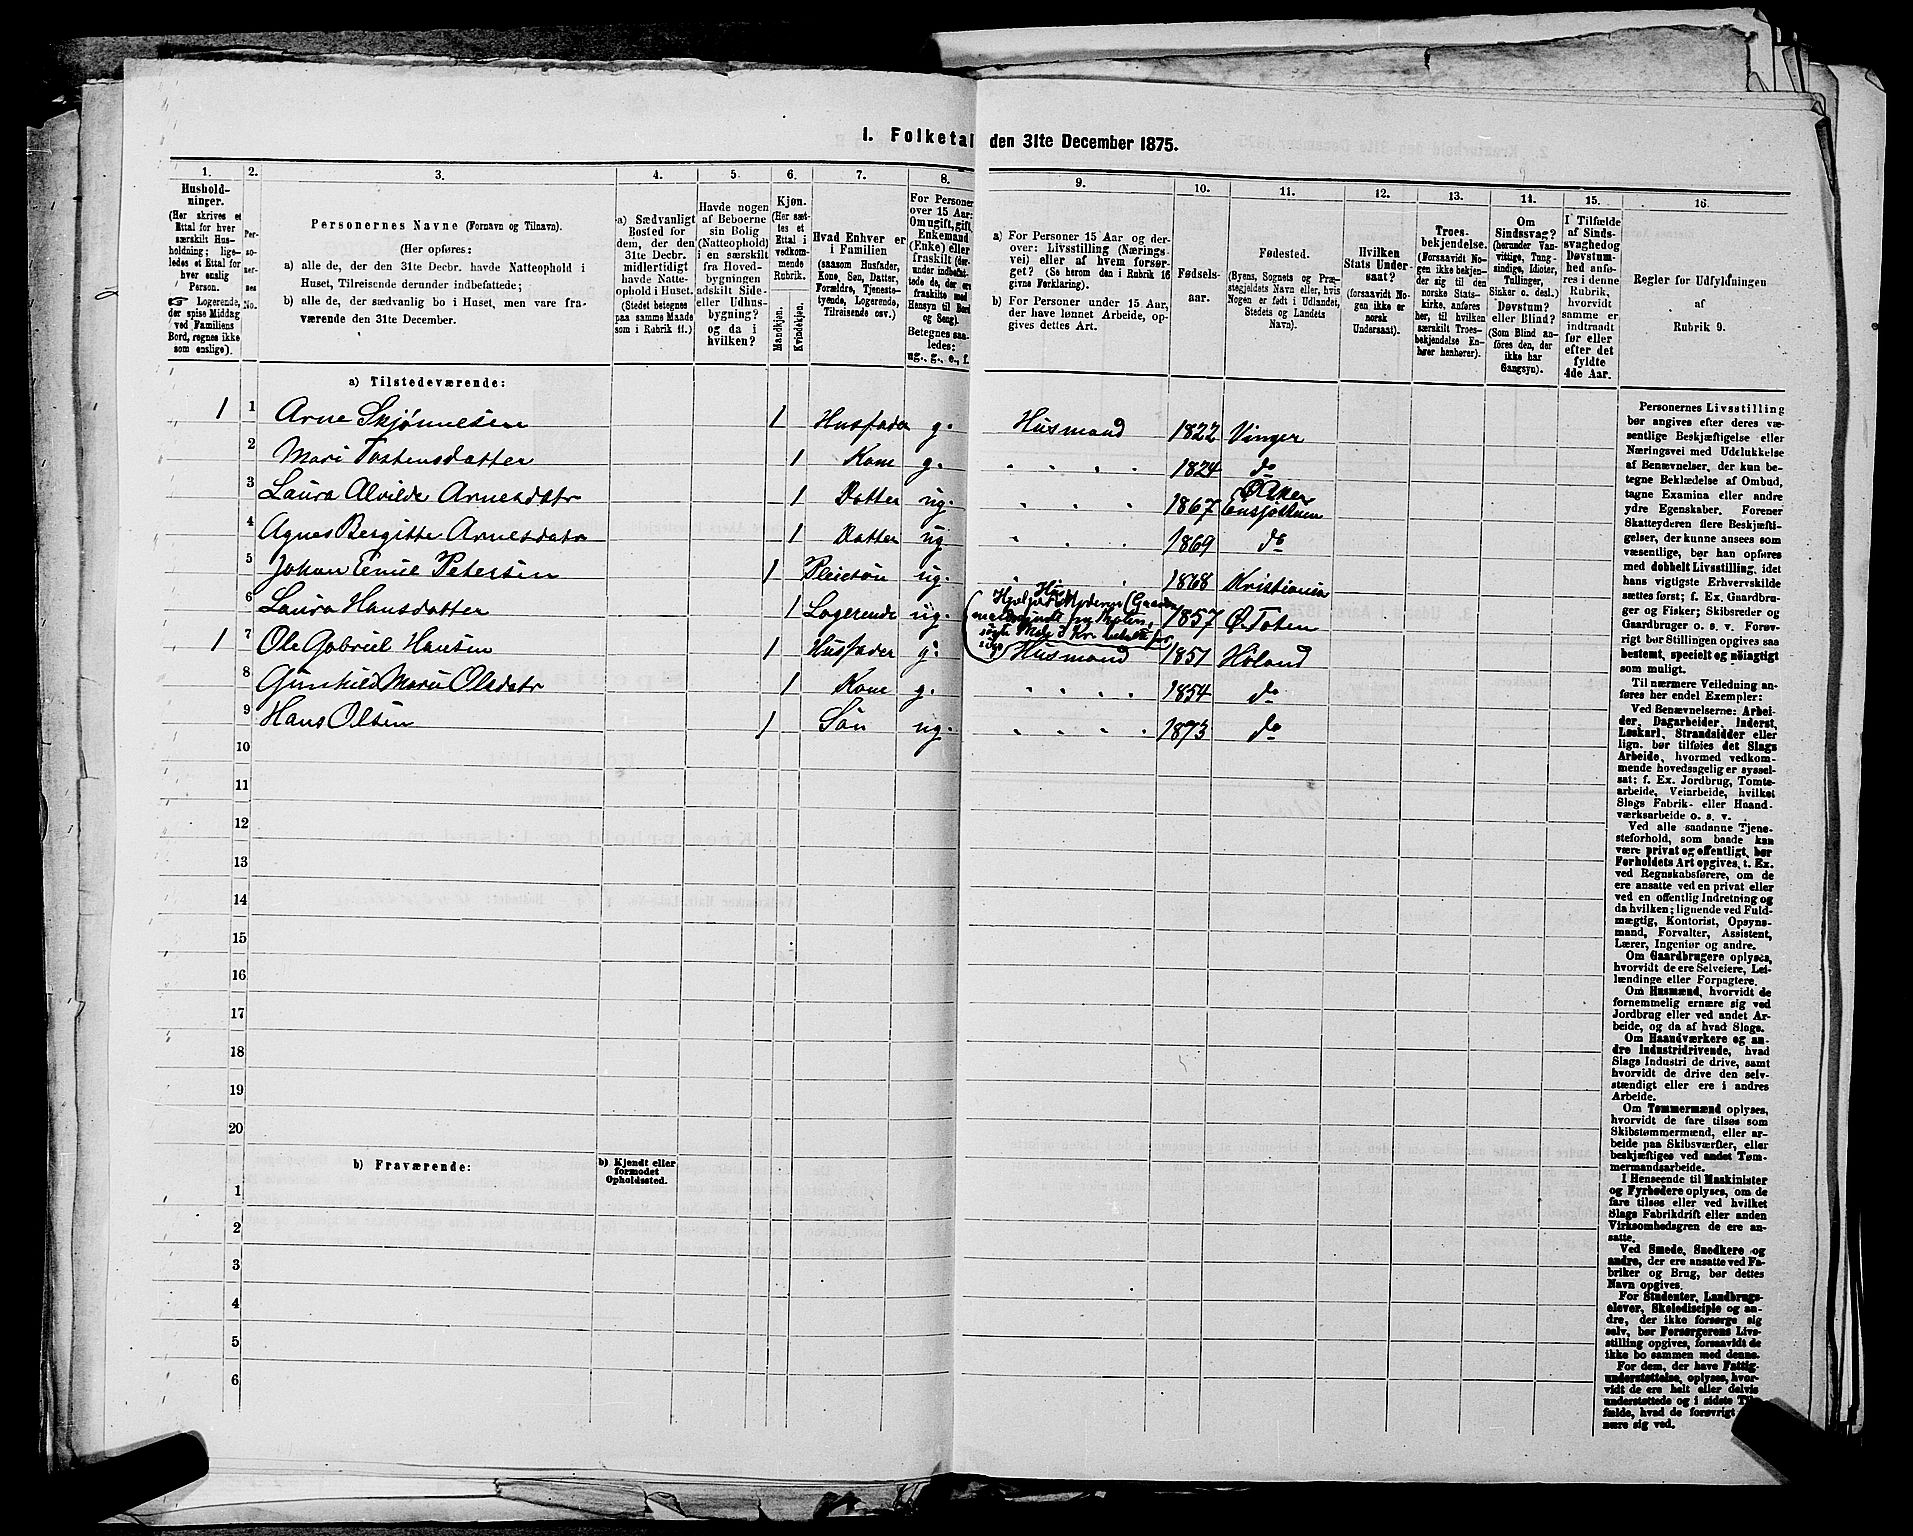 1. Folketal den 31te December 1875.
1.
Hushold-
ninger.
(Her skrives et
Ettal for hver
særskilt Hus-
holdning; lige-
ledes et Ettal for
hver enslig
Person.
☞ Logerende,
der spise Middag
ved Familiens
Bord, regnes ikke
som enslige).
2.
Per-
so-
ner-
nes
No.
3.
Personernes Navne (Fornavn og Tilnavn).
(Her opføres:
a) alle de, der den 31te Decbr. havde Natteophold i
Huset, Tilreisende derunder indbefattede;
b) alle de, der sædvanlig bo i Huset, men vare fra-
værende den 31te December.
4.
a) Sædvanligt
Bosted for
dem, der den
31te Decbr.
midlertidigt
havde Natte-
ophold i Huset.
(Stedet betegnes
paa samme Maade
som i Rubrik 11.)
5.
Havde nogen
af Beboerne
sin Bolig
(Natteophold)
i en særskilt
fra Hoved-
bygningen
adskilt Side-
eller Udhus-
bygning?
og da i
hvilken?
6.
Kjøn.
(Her sæt-
tes et
Ettal i
vedkom-
mende
Rubrik.
Mandkjøn.
Kvindekjøn.
7.
Hvad Enhver er
i Familien
(saasom Husfader,
Kone, Søn, Datter,
Forældre, Tjeneste-
tyende, Logerende,
Tilreisende osv.)
8.
For Personer
over 15 Aar:
Om ugift, gift,
Enkemand
(Enke) eller
fraskilt (der-
under indbefat-
tede de, der ere
fraskilte med
Hensyn til Bord
og Seng).
Betegnes saa-
ledes:
ug., g., e., f.
9.
a) For Personer 15 Aar og der-
over: Livsstilling (Nærings-
vei) eller af hvem forsør-
get? (Se herom den i Rubrik 16
givne Forklaring).
b) For Personer under 15 Aar,
der have lønnet Arbeide, op-
gives dettes Art.
10.
Fødsels-
aar.
11.
Fødested.
(Byens, Sognets og Præ-
stegjeldets Navn eller, hvis
Nogen er født i Udlandet,
Stedets og Landets
Navn).
12.
Hvilken
Stats Under-
saat?
(forsaavidt No-
gen ikke er
norsk
Undersaat).
13.
Troes-
bekjendelse.
(Forsaavidt No-
gen ikke bekjen-
der sig til den
norske Stats-
kirke, anføres
her, til hvilken
særskilt Troes-
bekjendelse En-
hver henhører).
14.
Om
Sindssvag?
(herunder Van-
vittige, Tung-
sindige, Idioter,
Tullinger,
Sinker o. desl.)
Døvstum?
eller Blind?
(Som Blind an-
føres den, der
ikke har
Gangsyn).
15.
I Tilfælde
af Sinds-
svaghed og
Døvstum-
hed anfø-
res i denne
Rubrik,
hvorvidt
samme er
indtraadt
før eller
efter det
fyldte
4de Aar.
16.
Regler for Udfyldningen
af
Rubrik 9.
a) Tilstedeværende:
1 1 Arne Skjønnesen 1 Husfader g. Husmand 1822 Vinger
2 Mari Tostensdatter 1 Kone g. 1824 do
3 Laura Alvilde Arnesdatr 1 Datter ug. 1867 Ø. Aker
4 Agnes Bergitte Arnesdatr 1 Datter ug 1869 do
5 Johan Emil Petersen 1 Pleiesøn ug. 1868 Kristiania
6 Laura Hansdatter 1 Logerende ug. 1857 Ø. Toten
1 7 Ole Gabriel Hansen 1 Husfader g. Husmand 1851 Høland
8 Gunhild Marie Olsdatr 1 Kone g. 1854 do
9 Hans Olsen 1 Søn ug. 1873 do
10
11
12
13
14
15
16
17
18
19
20
b) Fraværende:
b) Kjendt eller
formodet
Opholdssted.
1
2
3
4
5
6
Personernes Livsstilling
bør angives efter deres væ-
sentlige Beskjæftigelse eller
Næringsvei med Udelukkelse
af Benævnelser, der kun be-
tegne Beklædelse af Ombud,
tagne Examina eller andre
ydre Egenskaber. Forener
Skatteyderen flere Beskjæfti-
gelser, der kunne ansees som
væsentlige, bør han opføres
med dobbelt Livsstilling, idet
hans vigtigste Erhvervskilde
sættes først; f. Ex. Gaardbru-
ger og Fisker; Skibsreder og
Gaardbruger o. s. v. Forøv-
rigt bør Stillingen opgives saa
bestemt, specielt og nøiagtigt
som muligt.
Til nærmere Veiledning an-
føres her endel Exempler:
Ved Benævnelserne: Arbei-
der, Dagarbeider, Inderst,
Løskarl, Strandsidder eller
lign. bør tilføies det Slags
Arbeide, hvormed vedkom-
mende hovedsagelig er syssel-
sat; f. Ex. Jordbrug, Tomte-
arbeide, Veiarbeide, hvilket
Slags Fabrik- eller Haand-
værksarbeide o. s. v.
Ved alle saadanne Tjene-
steforhold, som baade kan
være privat og offentligt, bør
Forholdets Art opgives, t. Ex.
ved Regnskabsførere, om de
ere ansatte ved en privat eller
ved en offentlig Indretning og
da hvilken; lignende ved Fuld-
mægtig, Kontorist, Opsyns-
mand, Forvalter, Assistent,
Lærer, Ingeniør og andre.
Om Gaardbrugere oplyses,
hvorvidt de ere Selveiere, Lei-
lændinge eller Forpagtere.
Om Husmænd, hvorvidt de
fornemmelig ernære sig ved
Jordbrug eller ved andet Ar-
beide, og da af hvad Slags.
Om Haandværkere og an-
dre Industridrivende, hvad
Slags Industri de drive, samt
hvorvidt de drive den selv-
stændigt eller ere i andres
Arbeide.
Om Tømmermænd oplyses,
hvorvidt de fare tilsøs som
Skibstømmermænd, eller ar-
beide paa Skibsværfter, eller
beskjæftiges ved andet Tøm-
mermandsarbeide.
I Henseende til Maskinister
og Fyrbødere oplyses, om de
fare tilsøs eller ved hvilket
Slags Fabrikdrift eller anden
Virksomhedsgren de ere an-
satte.
Ved Smede, Snedkere og
andre, der ere ansatte ved Fa-
briker og Brug, bør dettes
Navn opgives.
For Studenter, Landbrugs-
elever, Skoledisciple og an-
dre, der ikke forsørge sig
selv, bør Forsørgerens Livs-
stilling opgives, forsaavidt de
ikke bo sammen med denne.
For dem, der have Fattig-
understøttelse, oplyses, hvor-
vidt de ere helt eller delvis
understøttede og i sidste Til-
fælde, hvad de forøvrigt
nære sig ved.